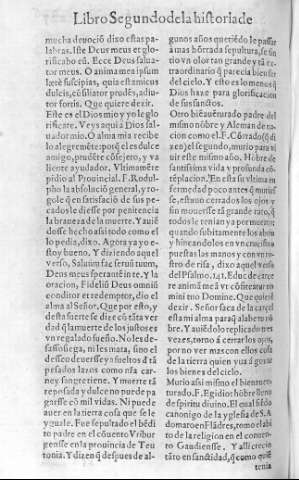 Libro Segundo de la historia de
mucha deuociõ dixo estas pa-
labras. Iste Deus meus et glo-
rificabo eũ. Ecce Deus salua-
tor meus. O anima mea ipsum
læte suscipias, quia est amicus
dulcis, cõsiliator prudẽs, adiu-
tor fortis. Que quiere dezir.
Este es el Dios mio y yo le glo
rificare. Veys aqui a Dios sal-
uador mio. O alma mia recibe
lo alegremẽte: porq̃ el es dulce
amigo, prudẽte cõsejero, y va
liente ayudador. Vltimamẽte
pidio al Prouincial. F. Rodul-
pho la absoluciõ general, y ro-
gole q̃ en satisfaciõ de sus pe-
cados le diesse por penitencia
la braueza de la muerte. Y auiẽ
dosse hecho assi todo como el
lo pedia, dixo. Agora ya yo e-
stoy bueno. Y diziendo aquel
verso, Saluum fac seruũ tuum,
Deus meus sperantẽ in te. Y la
oracion, Fideliũ Deus omniũ
conditor et redemptor, dio el
alma al Señor. Que por esto, y
desta fuerte se dize cõ tãta ver
dad q̃ la muerte de los justos es
vn regalado sueño. No les de-
sassossiega, ni les mata, sino el
desseo de verse y a sueltos d tã
pesados lazos como esta car-
ne y sangre tiene. Y muerte tã
reposada y dulce no puede pa
garsse cõ mil vidas. Ni puede
auer en la tierra cosa que se le
yguale. Fue sepultado el bẽdi
to padre en el cõuento Vribur
gensse en la prouincia de Teu
tonia. Y dizen q̃ despues de al-
gunos años queriẽdo le passar
a mas hõrrada sepultura, se sin
tio vn olor tan grande y tã ex-
traordinario q̃ parecia bien ser
del cielo. Y esto es lo menos q̃
Dios haze para glorificacion
de sus sanctos.
Otro biẽauẽturado padre del
mismo nõbre y Aleman de na
cion como el. F. Cõrrado (q̃ di
xeen) el segundo, murio para vi
uir este mismo año. Hõbre de
sanctissima vida y profunda cõ
tẽplacion. En esta su vltima en
fermedad poco antes q̃ muries
se, estauo cerrados los ojos, y
sin mouersse tã grande rato, q̃
todos le tenian ya por muerto:
quando subitamente los abrio
y hincandolos en vn crucifixo
puestas las manos y con vn ro-
stro de risa, dixo aquel verso
del Psalmo. 141. Educ de carce
re animã meã vt cõfiteatur no
mini tuo Domine. Que quie-
dezir. Señor saca de la carcel
esta mi alma paraq̃ alabe tu nõ
bre. Y auiẽdolo replicado tres
vezes, torno a cerrar los ojos,
por no ver mas con ellos cosa
de la tierra quien yua a gozar
los bienes del ciclo.
Murio assi mismo el bienauen
turado. F. Egidio: hõbre lleno
de spiritu diuino. El qual siẽdo
canonigo de la yglesia de S. A
domaro en Flãdres, tomo el abi
to de la religion en el conuen-
to Gaudiensse. Y assi crecio
tãto en sanctidad, q̃ como quiẽ
tenia